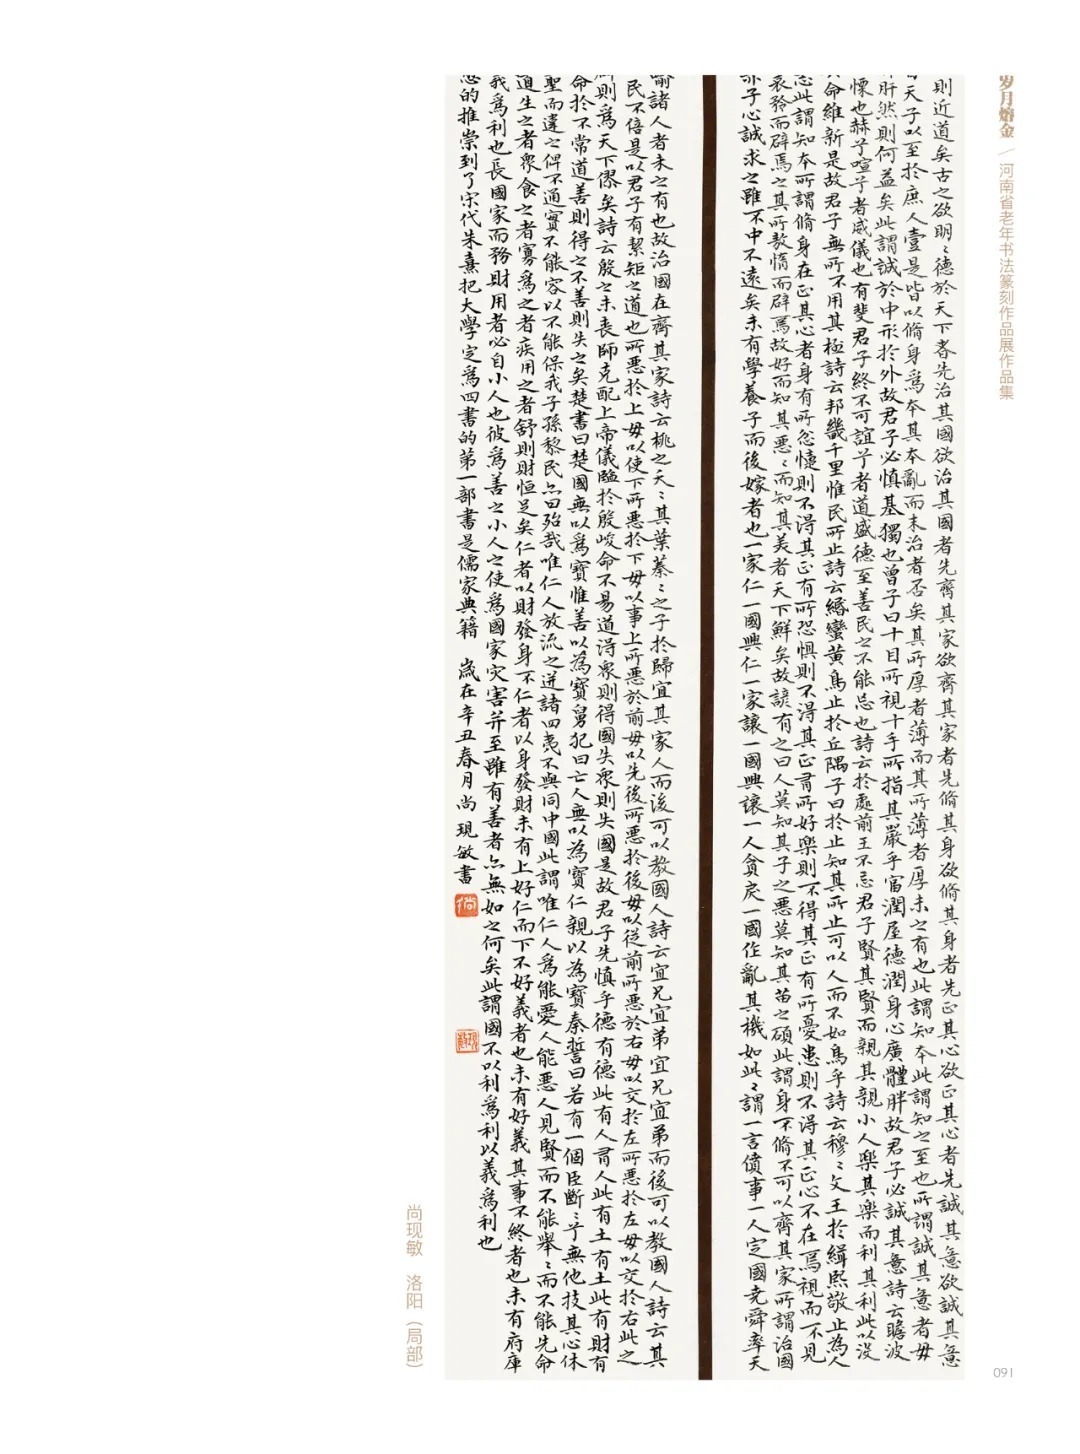 岁月熔金 / 河南省老年书法篆刻作品展作品集
則近道矣古之欲明〻德於天下者先治其國欲治其國者先齊其家欲齊其家者先脩其身欲脩其身者先正其心欲正其心者先誠其意欲誠其意
天子以至於庶人壹是皆以脩身爲本其本亂而末治者否矣其所厚者薄而其所薄者厚未之有也此謂知本此謂知之至也所謂誠其意者毋
肝然則何益矣此謂誠於中形於外故君子必慎基獨也曾子曰十目所視十手所指其嚴乎富潤屋德潤身心廣體胖故君子必誠其意詩云瞻彼
慄也赫兮喧兮者威儀也有斐君子終不可諠兮者道盛德至善民之不能忘也詩云於戲前王不忘君子賢其賢而親其親小人樂其樂而利其利此以沒
命維新是故君子無所不用其極詩云邦畿千里惟民所止詩云緡蠻黃鳥止於丘隅子曰於止知其所止可以人而不如鳥乎詩云穆〻文王於緝熙敬止為人
此謂知本所謂脩身在正其心者身有所忿懥則不得其正有所恐懼則不得其正有所好樂則不得其正有所憂患則不得其正心不在焉視而不見
哀矜而辟焉之其所敖惰而辟焉故好而知其惡〻而知其美者天下鮮矣故諺有之曰人莫知其子之惡莫知其苗之碩此謂身不脩不可以齊其家所謂治國
赤子心誠求之雖不中不遠矣未有學養子而後嫁者也一家仁一國興仁一家讓一國興讓一人貪戾一國作亂其機如此〻謂一言僨事一人定國堯舜率天
喻諸人者未之有也故治國在齊其家詩云桃之夭〻其葉蓁〻之子於歸宜其家人而後可以教國人詩云宜兄宜弟宜兄宜弟而後可以教國人詩云其
民不倍是以君子有絜矩之道也所惡於上毋以使下所惡於下毋以事上所惡於前毋以先後所惡於後毋以從前所惡於右毋以交於左所惡於左毋以交於右此之
則爲天下僇矣詩云殷之未喪師克配上帝儀監於殷峻命不易道得衆則得國失衆則失國是故君子先慎乎德有德此有人有人此有土有土此有財有
命於不常道善則得之不善則失之矣楚書曰楚國無以爲寶惟善以為寶舅犯曰亡人無以為寶仁親以為寶秦誓曰若有一個臣斷〻兮無他技其心休
聖而違之俾不通實不能容以不能保我子孫黎民亦曰殆哉唯仁人放流之迸諸四夷不與同中國此謂唯仁人爲能愛人能惡人見賢而不能舉〻而不能先命
道生之者衆食之者寡爲之者疾用之者舒則財恒足矣仁者以財發身不仁者以身發財未有上好仁而下不好義者也未有好義其事不終者也未有府庫
義爲利也長國家而務財用者必自小人也彼爲善之小人之使爲國家灾害并至雖有善者亦無如之何矣此謂國不以利爲利以義爲利也
的推崇到了宋代朱熹把大學定爲四書的第一部書是儒家典籍 歲在辛丑春月尚現敏書
尚现敏 洛阳（局部）
091